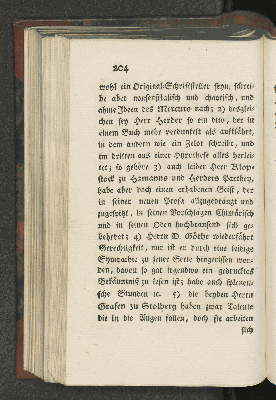 204
wohl ein Original-Schriftsteller seyn, schrei-
be aber nonsensikalisch und chaotisch, und
ahme Ideen des Mercurs nach; 2) desglei-
chen sey Herr Herder so ein dito, der in
einem Buch mehr verdunkelt als aufklährt,
in dem andern wie ein Zelot schreibt, und
im dritten aus einer Hypothese alles herlei-
tet; so gehöre 3) auch leider Herr Klop-
stock zu Hamanns und Herders Parthey,
habe aber doch einen erhabenen Geist, der
in seiner neuen Prosa
zugespitzt, in seinen Vorschlägen Chimärisch
und in seinen Oden hochbrausend sich ge-
behrdet; 4) Herrn D. Göthe wiederfährt
Gerechtigkeit, nur ist er durch eine leidige
Sympathie zu jener Sekte hingerissen wor-
den, davon so gar irgendwo ein gedrucktes
Bekänntniß zu lesen ist; habe auch spleneti-
sche Stunden ec. 5) die beyden Herrn
Grafen zu Stolberg haben zwar Talente
die in die Augen fallen, doch sie arbeiten
sich